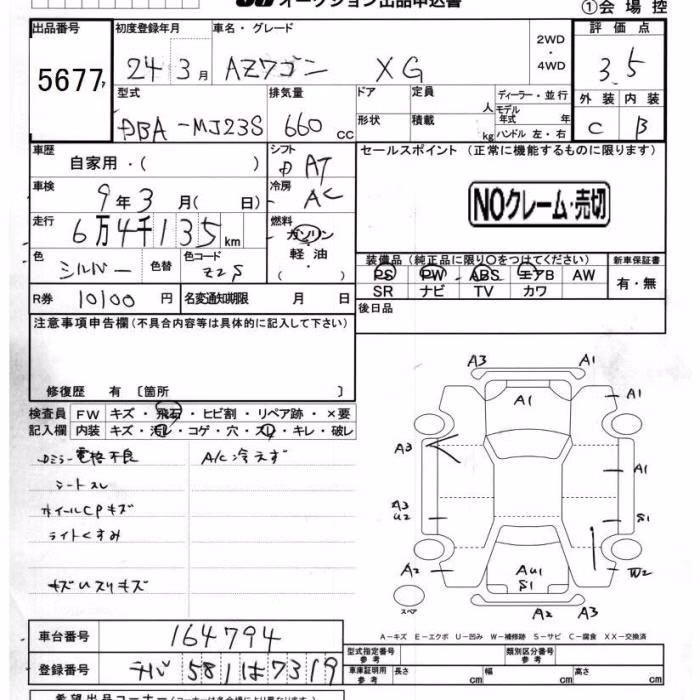 オークション出品申込書
①会場控
出品番号
5677
初度登録年月
24年3月
車名・グレード
AZワゴン XG
2WD・4WD
評価点
3.5
外装 内装
C B
型式
DBA-MJ23S
排気量
660 CC
ドア
形状
定員 人
積載 kg
ディーラー・並行
モデル年式 年
ハンドル 左・右
車歴
自家用・( )
シフト
AT
セールスポイント (正常に機能するものに限ります)
NOクレーム・売切
車検
9年3月( 日)
冷房
AC
走行
6万4千135km
燃料
ガソリン
軽油・
( )
色
シルバー
色替
色コード
Z2S
装備品 (純正品に限り○をつけてください)
PS PW ABS エアB AW
SR ナビ TV カワ
新車保証書
有・無
R券
10100円
名変通知期限 月 日
後日品
注意事項申告欄(不具合内容等は具体的に記入して下さい)
修復歴 有 〔箇所 〕
検査員記入欄
FW キズ・飛石・ヒビ割・リペア跡・×要
内装 キズ・汚レ・コゲ・穴・スレ・キレ・破レ
Dミラー電格不良
A/C冷えず
シートスレ
ホイールCPキズ
ライトくすみ
キズUスリキズ
A3 A1
A1 A1
A3 A1
A3 U2 S1
A2 AU1 S1 W2
A2 A3
スペア
A-キズ E-エクボ U-凹み W-補修跡 S-サビ C-腐食 XX-交換済
車台番号
164794
登録番号
チバ 581は7319
型式指定番号 参考
類別区分番号 参考
車庫証明用 参考
長さ cm 幅 cm 高さ cm
希望出品コーナー